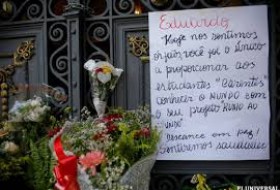 Eduardo
Hoje nos sentimos
orfãos você foi o único
a proporcionar aos
estudantes "Carentes"
conhecer o MUNDO com
o seu projeto "RUMO AO
Descance em paz!
Sentiremos saudades